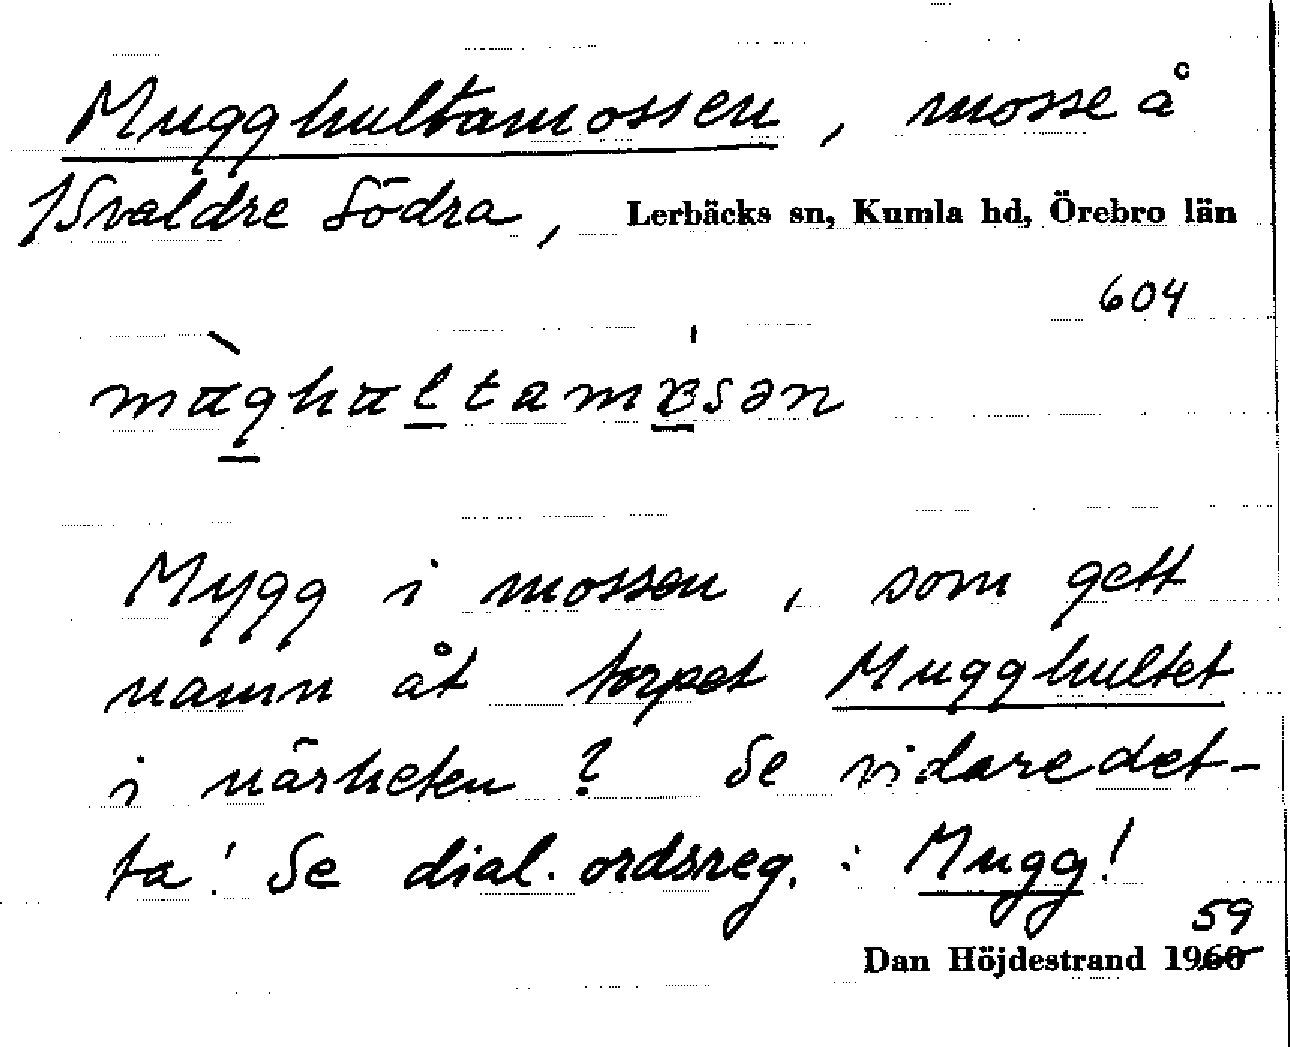 Mugghultamossen, mosse å
Isvaldre Södra, Lerbäcks sn, Kumla hd, Örebro län
604
Mygg i mossen, som gett
namn åt torpet Mugghultet
i närheten? Se vidare det-
ta! Se dial. ordsreg.: Mugg!
59
Dan Höjdestrand 1960